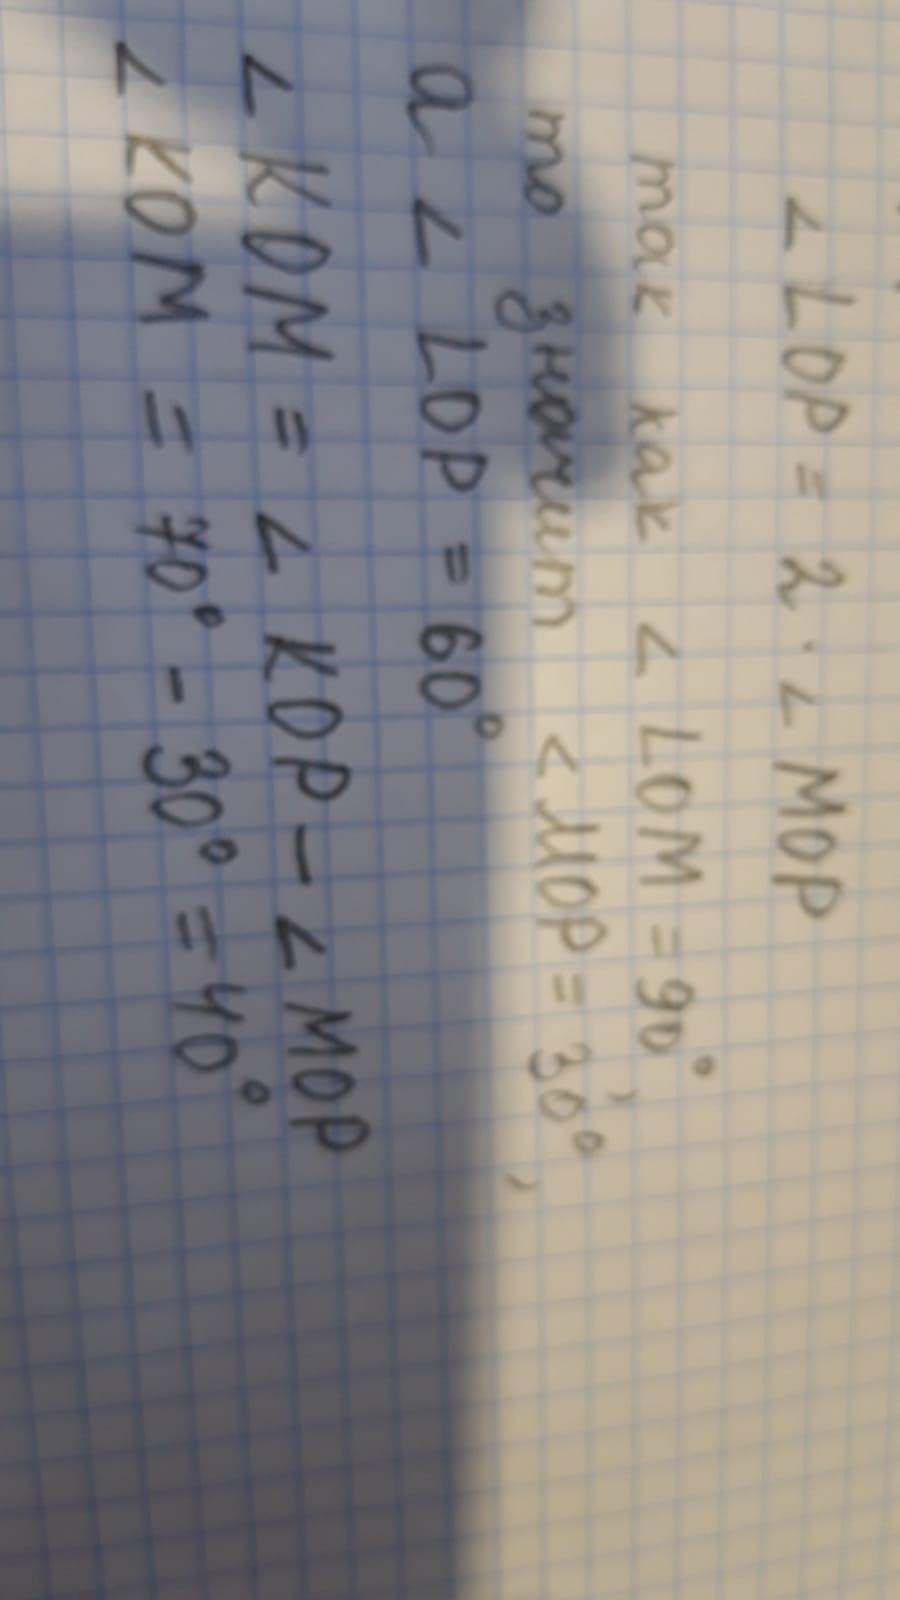 ∠ LOP = 2 · ∠ MOP
так как ∠ LOM = 90°,
то значит < MOP = 30°,
а ∠ LOP = 60°
∠ KOM = ∠ KOP - ∠ MOP
∠ KOM = 70° - 30° = 40°